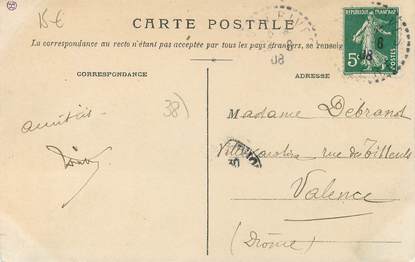 15€
CARTE POSTALE
La correspondance au recto n'étant pas acceptée par tous les pays étrangers, se renseig
CORRESPONDANCE
ADRESSE
RÉPUBLIQUE FRANÇAISE
5c
POSTES
8
08
38)
amitiés
Madame Debrand
rue des Tilleuls
Valence
(Drôme)